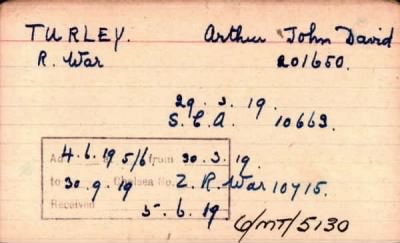 TURLEY. Arthur John David
R. War 201650.
29. 3. 19.
S.C.A. 10663.
Ad 4.6.19 5/6 from 30.3.19.
to 30.9.19 Chelsea No. 2. R. War 10715.
Received 5.6.19
6/MT/5130